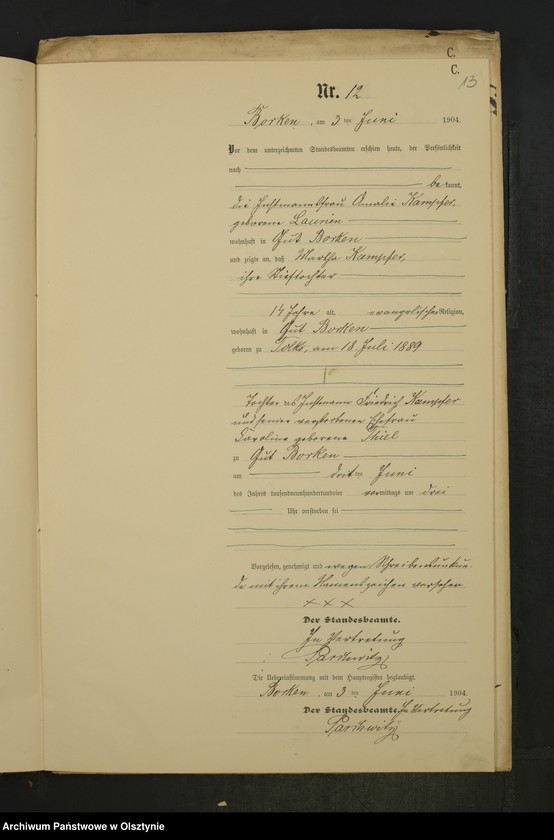 C.
C.
13
Nr. 12
Borken, am 3 ten Juni 1904.
Vor dem unterzeichneten Standesbeamten erschien heute, der Persönlichkeit
nach
bekannt,
die Instmannsfrau Amalie Kampfer,
geborene Laurien
wohnhaft in Gut Borken
und zeigte an, daß Martha Kampfer,
ihre Stieftochter
14 Jahre alt, evangelischer Religion,
wohnhaft in Gut Borken
geboren zu Tolks, am 18. Juli 1889
Tochter des Instmann Friedrich Kampfer
und seiner verstorbenen Ehefrau
Caroline geborene Thiel
zu Gut Borken
am dritten Juni
des Jahres tausendneunhundertundvier vormittags um drei
Uhr verstorben sei
Vorgelesen, genehmigt und wegen Schreibensunkun-
de mit ihrem Handzeichen versehen
+ + +
Der Standesbeamte.
In Vertretung
Die Uebereinstimmung mit dem Hauptregister beglaubigt.
Borken, am 3 ten Juni 1904.
Der Standesbeamte. In Vertretung
Archiwum Państwowe w Olsztynie